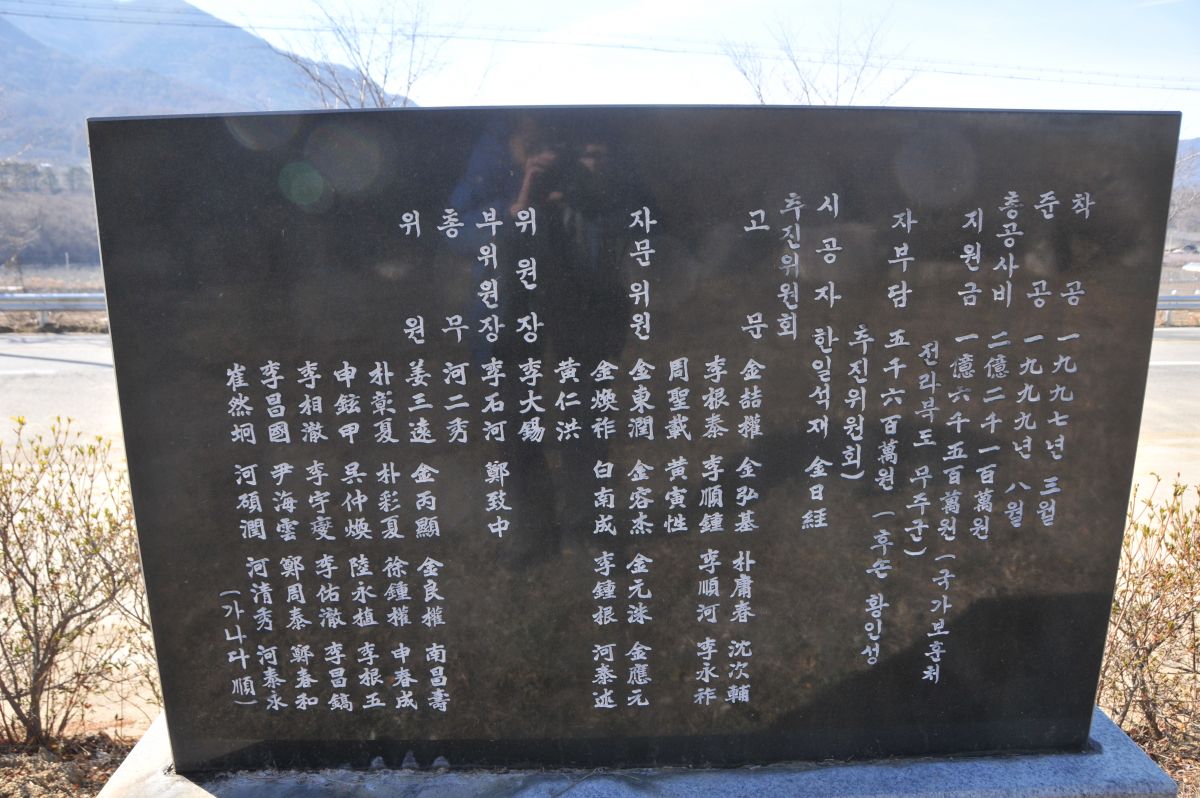 착 공 一九九七년 三월
준 공 一九九九년 八월
총공사비 二億二千一百萬원
지원금 一億六千五百萬원 (국가보훈처
전라북도 무주군)
자부담 五千六百萬원 (후손 황인성
추진위원회)
시공자 한일석재 金日経
추진위원회
고 문 金喆權 金弘基 朴庸春 沈次輔
李根泰 李順鍾 李順河 李永祚
周聖載 黃寅性
자문위원 金東潤 金容杰 金元洙 金應元
金煥祚 白南成 李鍾根 河泰述
黃仁洪
위원장 李大錫
부위원장 李石河 鄭致中
총 무 河二秀
위 원 姜三遠 金丙顯 金良權 南昌壽
朴彰夏 朴彩夏 徐鍾權 申春成
申鉉甲 吳仲煥 陸永植 李根五
李相澈 李宇燮 李佑澈 李昌鎬
李昌國 尹海雲 鄭周泰 鄭春和
崔然坰 河碩潤 河清秀 河泰永
(가나다順)